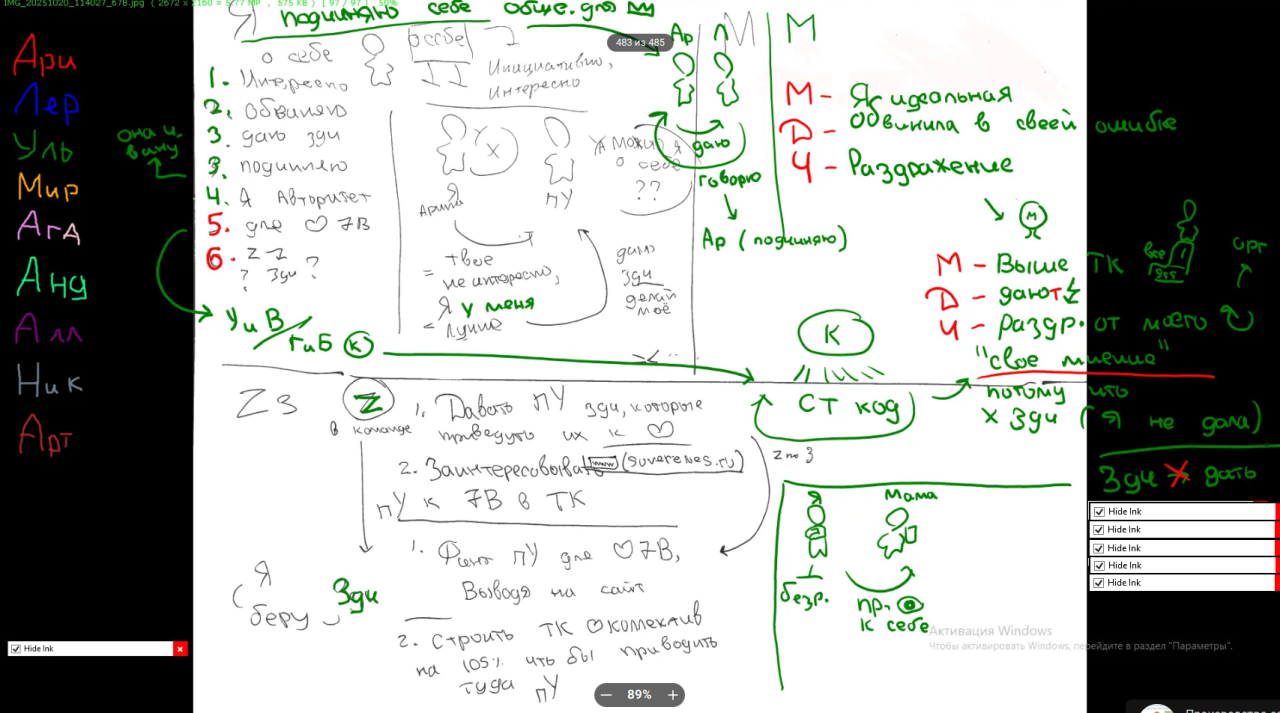 IMG_20251020_114027_678.jpg
483 из 485
Ари
Лер
Уль
Мир
Ага
Анд
Алл
Ник
Арт
Я подчиняю себе общ. для
о себе
1. Интересно
2. Обвиняю
3. даю зди
3. подчиняю
4. Я Авторитет
5. для ♡ 7В
6. Z - 1
? зди ?
она и.
вину
У и В
Г и Б К
о себе
Инициативно,
интересно
Х
Арина
ПУ
Я Можно я
о себе
??
= твоё
не интересно,
Я у меня
= лучше
даю
зди
делай
моё
Ар Л
даю
говорю
Ар (подчиняю)
М М
М - Я идеальная
D - Обвинила в своей ошибке
Ч - Раздражение
М
М - Выше
D - дают
Ч - Раздр. от моего
"своё мнение"
потому что
X Зди ( Я не дала)
Зди X дать
ТК
все
зди
орг
К
СТ код
Z 3
Z
в команде
1. Давать ПУ зди, которые
приведут их к ♡
2. Заинтересовывать
www (suverenes.ru)
ПУ к 7В в ТК
Z по 3
1. Фант ПУ для ♡ 7В,
Выводя на сайт
2. Строить ТК ♡ коллектив
на 105% что бы приводить
туда ПУ
Я
беру
Зди
Я Мама
безр.
пр.
к себе
Hide Ink
Hide Ink
Hide Ink
Hide Ink
Hide Ink
Hide Ink
Активация Windows
Чтобы активировать Windows, перейдите в раздел "Параметры".
89%